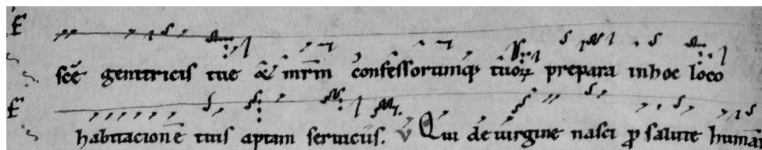 scē genitricis tue & mr̄m confessorumq; tuoꝝ prepara in hoc loco
habitacionē tuis aptam serviciis. V Qui de virgine nasci ꝓ salute humana